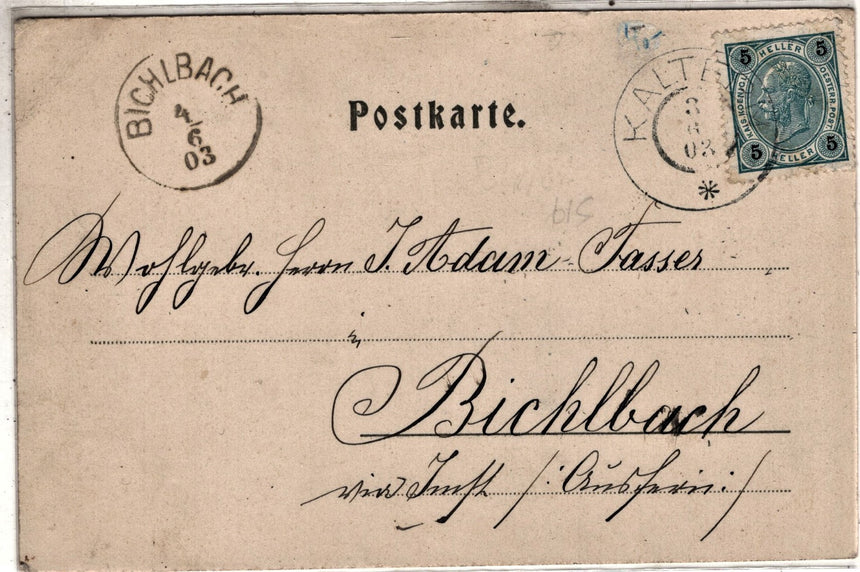 BICHLBACH
4/6
03
Postkarte.
KALTE
3
6
03
*
5 HELLER 5
KAIS. KOENIGL. OESTERR. POST.
5 HELLER 5
619
Wohlgebr. Herrn J. Adam Fasser
in
Bichlbach
via Imst /: Ausfern :/